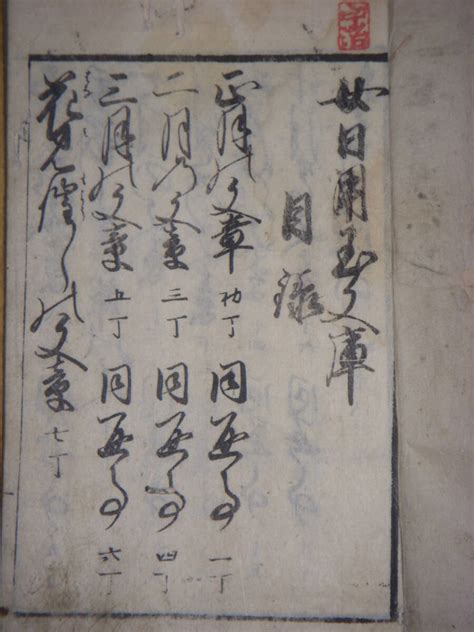 女日用玉文庫
目録
正月の文章 初丁 同返事 一丁
二月の文章 三丁 同返事 四丁
三月の文章 五丁 同返事 六丁
花見 の文章 七丁